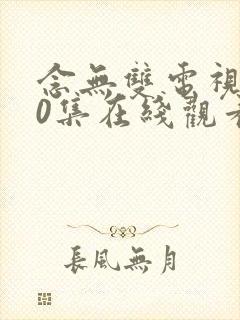 念無雙電視
0集在綫觀看
長風無月